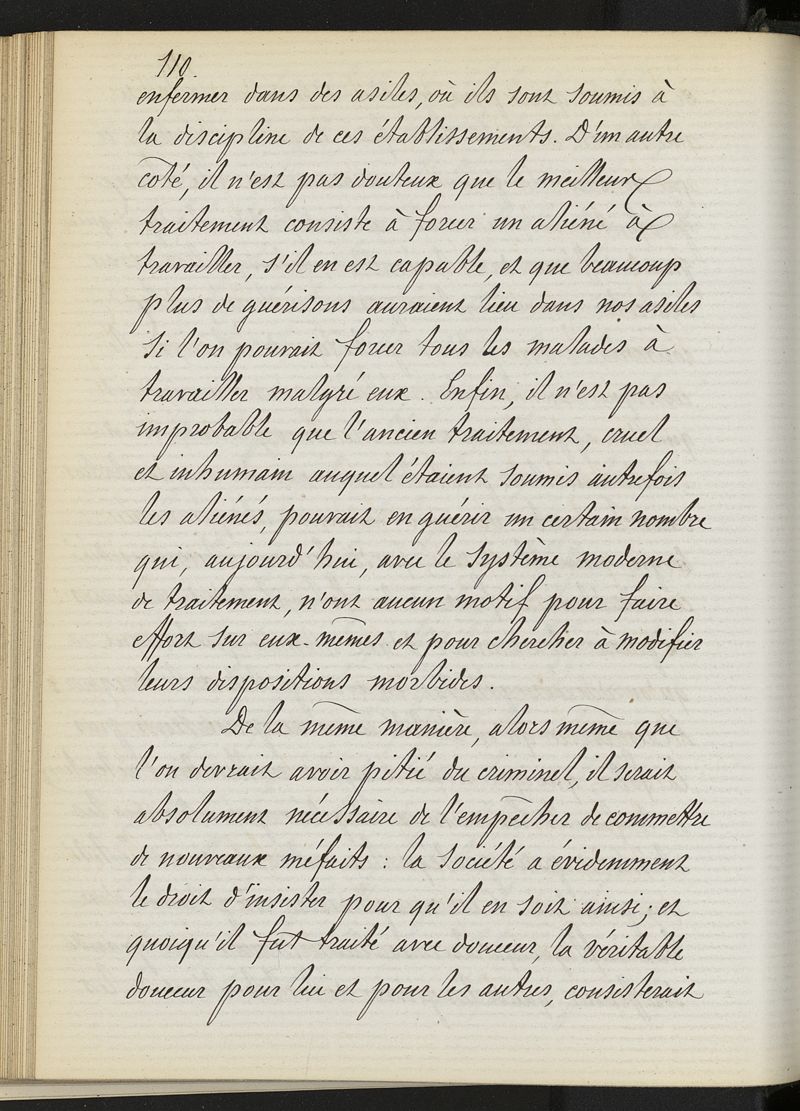 110
enfermer dans des asiles, où ils sont soumis à
la discipline de ces établissements. D'un autre
côté, il n'est pas douteux que le meilleur
traitement consiste à forcer un aliéné à
travailler, s'il en est capable, et que beaucoup
plus de guérisons auraient lieu dans nos asiles
si l'on pouvait forcer tous les malades à
travailler malgré eux. Enfin, il n'est pas
improbable que l'ancien traitement, cruel
et inhumain auquel étaient soumis autrefois
les aliénés, pouvait en guérir un certain nombre
qui, aujourd'hui, avec le système moderne
de traitement, n'ont aucun motif pour faire
effort sur eux-mêmes et pour chercher à modifier
leurs dispositions morbides.
De la même manière, alors même que
l'on devrait avoir pitié du criminel, il serait
absolument nécessaire de l'empêcher de commettre
de nouveaux méfaits : la société a évidemment
le droit d'insister pour qu'il en soit ainsi ; et
quoiqu'il fut traité avec douceur, la véritable
douceur pour lui et pour les autres, consisterait